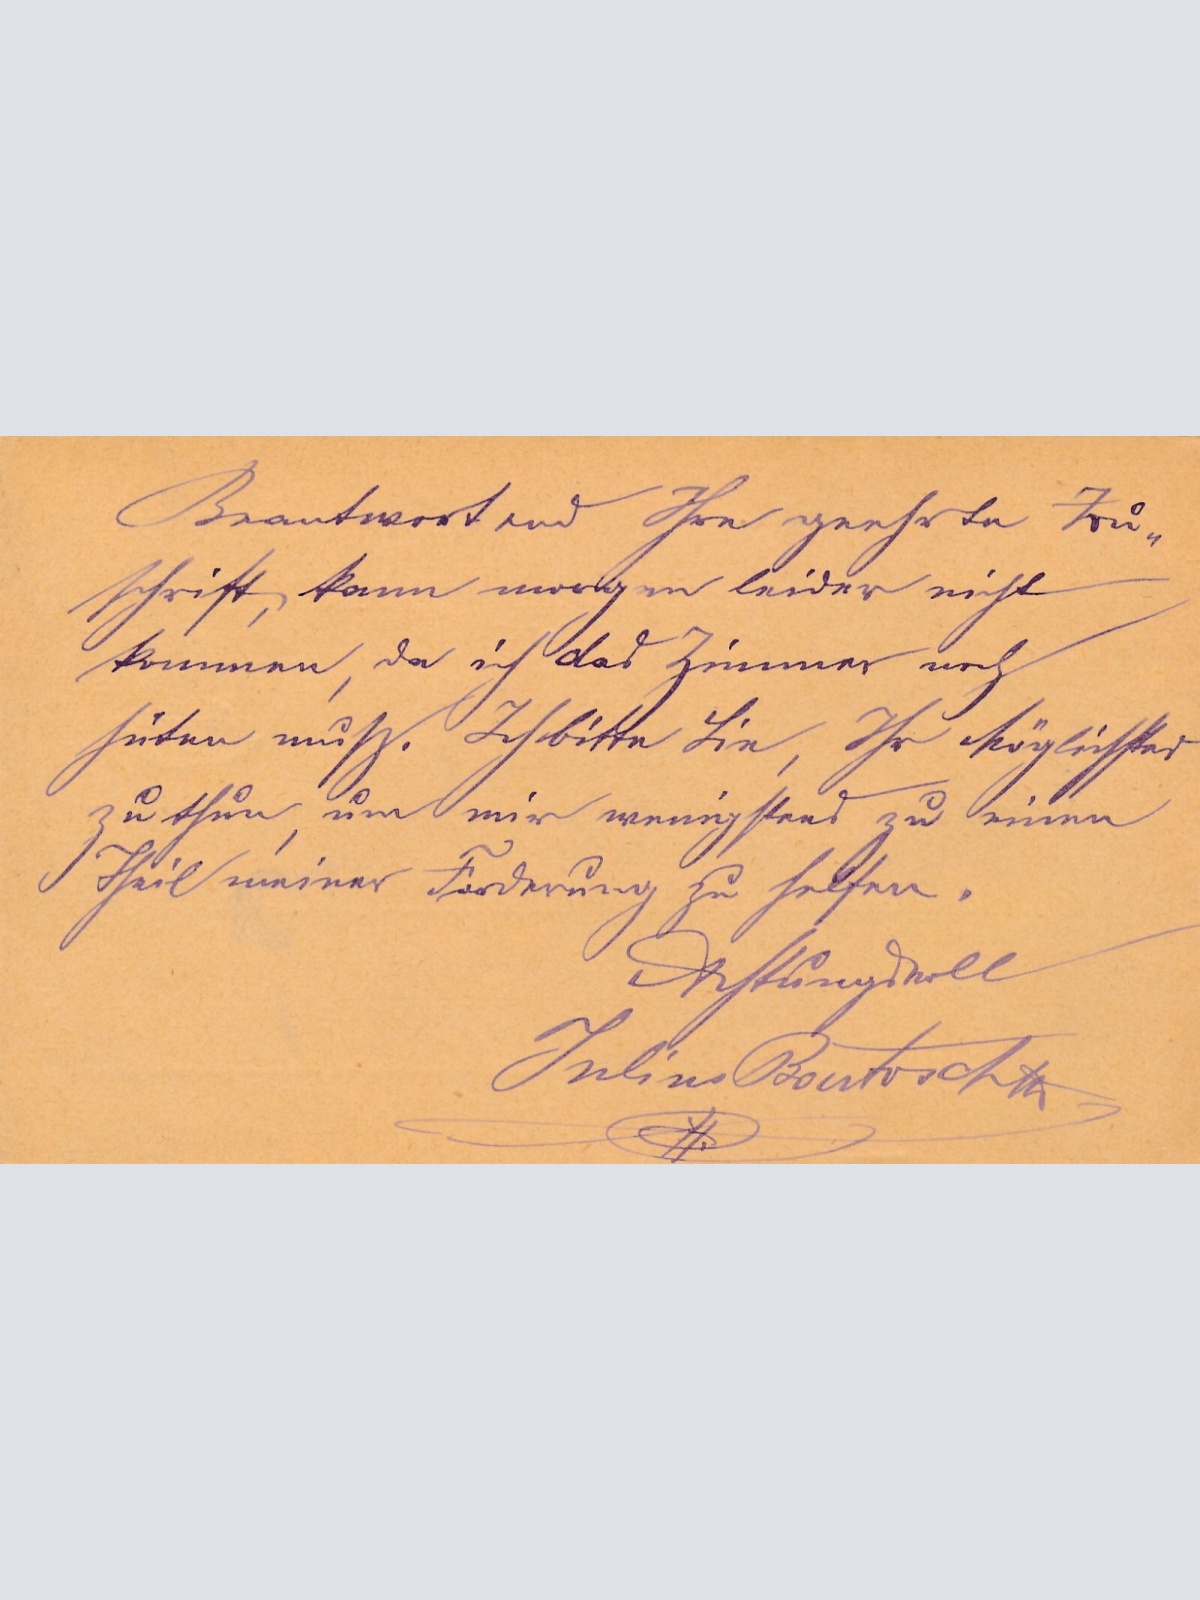 Beantwortend Ihre geehrte Zu„
schrift, kann morgen leider nicht
kommen, da ich das Zimmer noch
hüten muß. Ich bitte Sie, Ihr Möglichstes
zu thun, um mir wenigstens zu einen
Theil meiner Forderung zu helfen.
Achtungsvoll
Julius